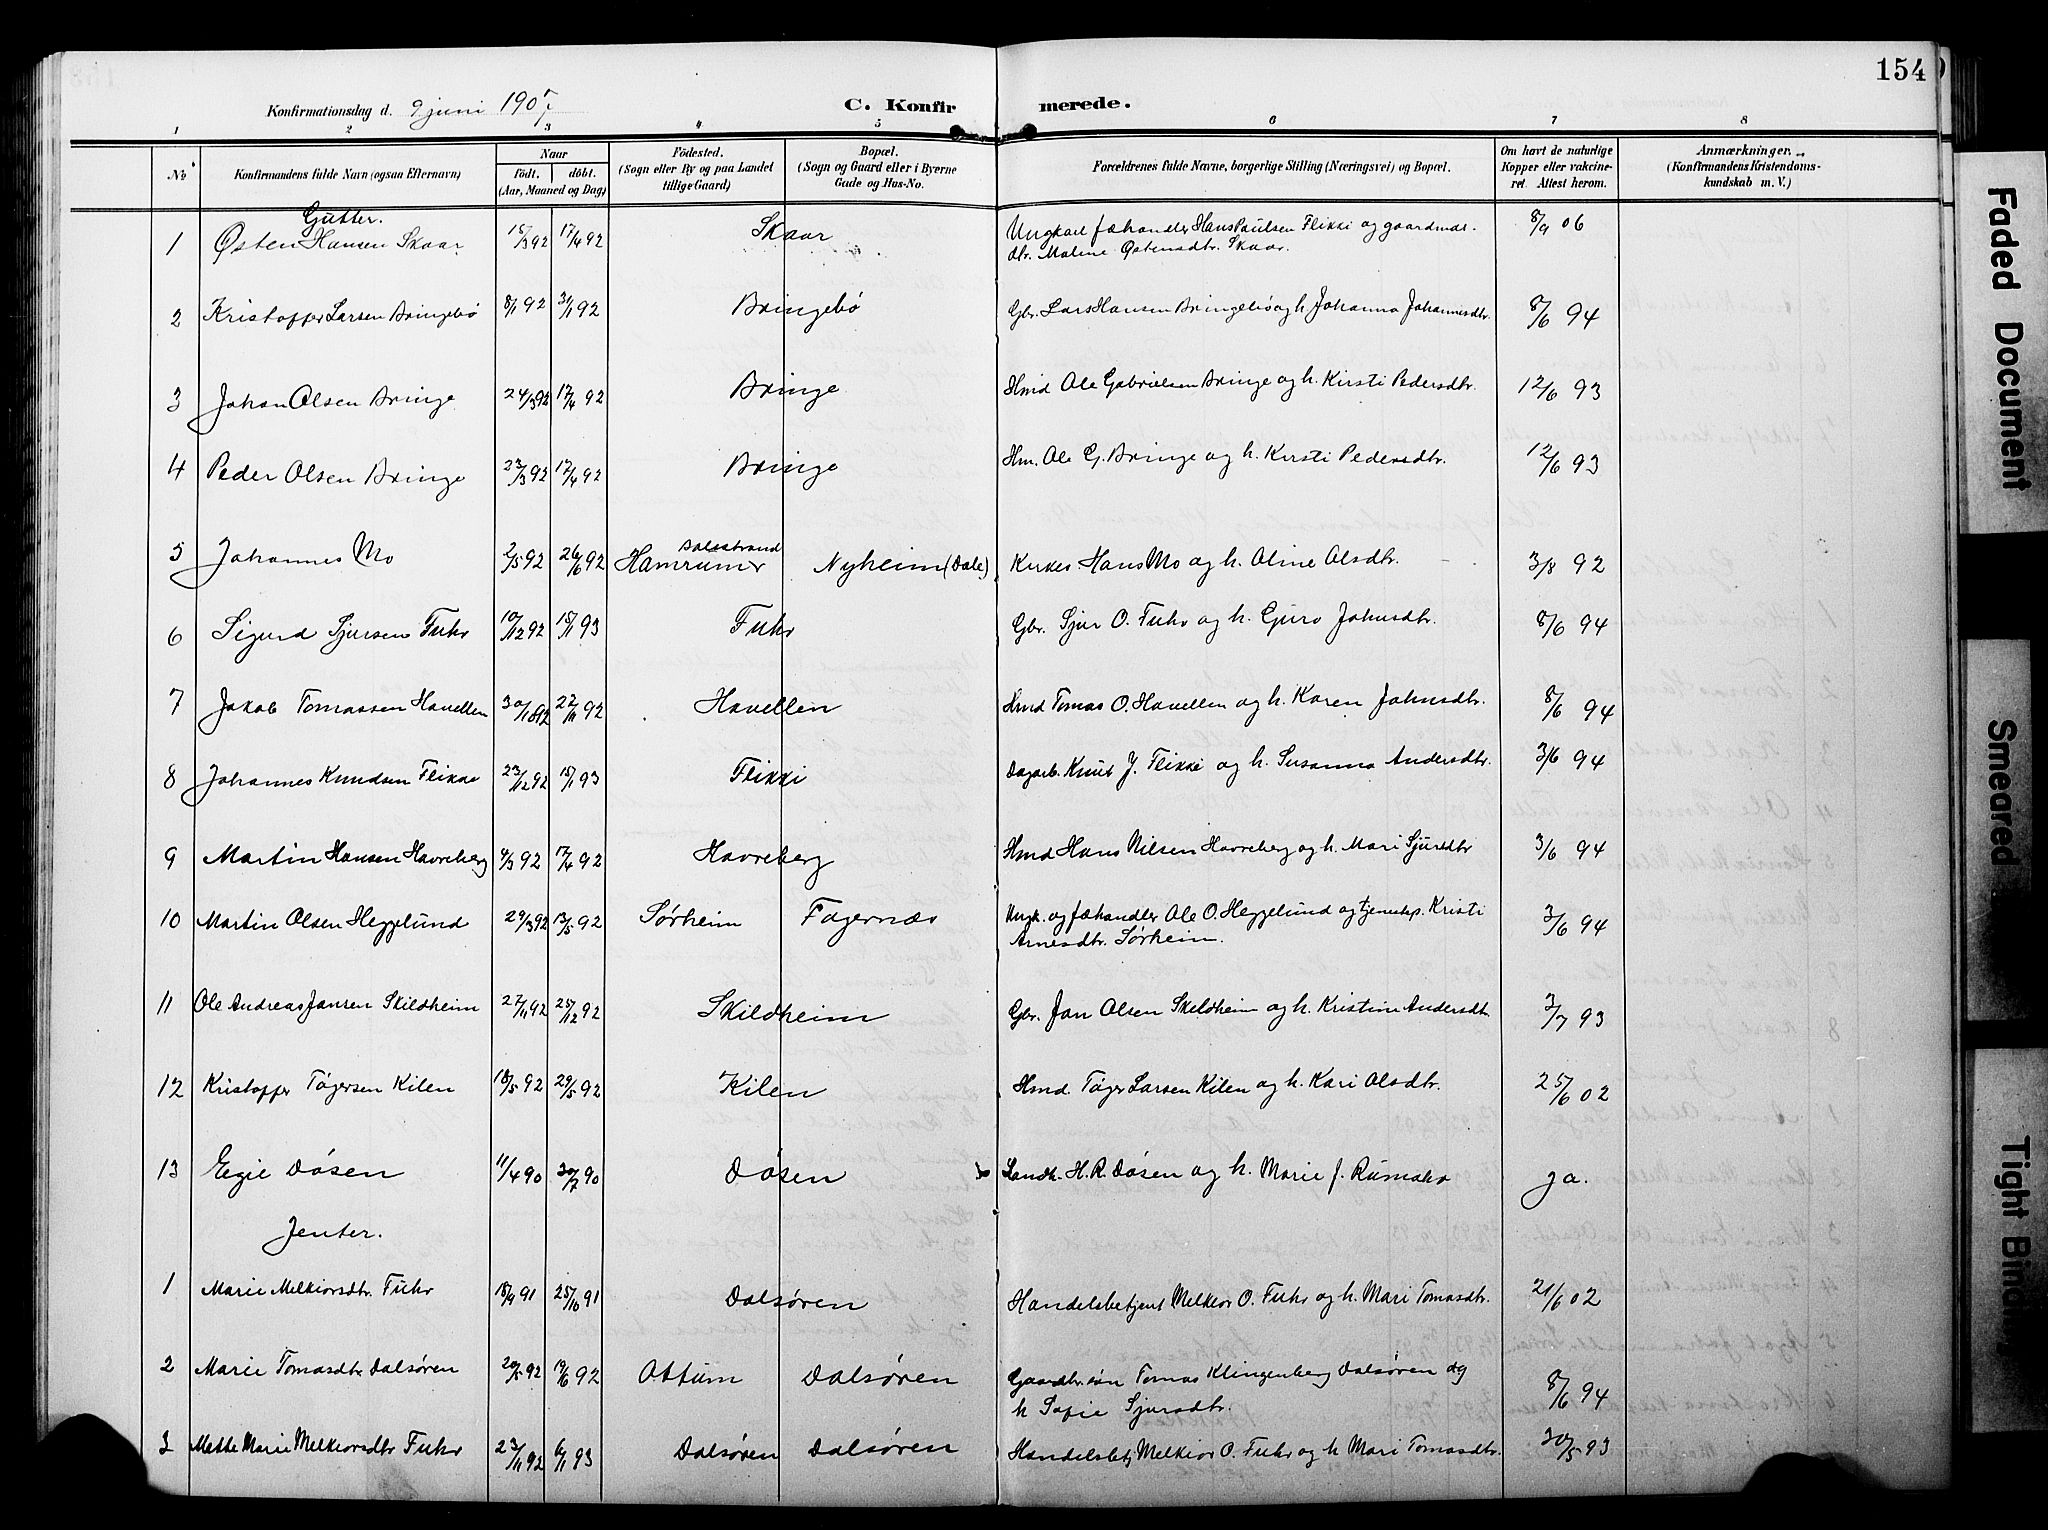 154
Konfirmationsdag d. 9 juni 1907
C. Konfirmerede.
1 2 3 4 5 6 7 8
No
Konfirmandens fulde Navn (ogsaa Efternavn)
Naar
födt. döbt.
(Aar, Maaned og Dag)
Födested.
(Sogn eller By og paa Landet
tillige Gaard)
Bopæl.
(Sogn og Gaard eller i Byerne
Gade og Hus-No.
Forældrenes fulde Navne, borgerlige Stilling (Næringsvei) og Bopæl.
Om havt de naturlige
Kopper eller vakcine-
ret. Attest herom.
Anmærkninger.
(Konfirmandens Kristendoms-
kundskab m. V.)
Gutter.
1 Østen Hansen Skaar 18/3 92 17/4 92 Skaar Ungkarl fæhandler Hans Paulsen Flikki og gaardmds-
dtr. Malene Østensdtr. Skaar. 8/9 06
2 Kristoffer Larsen Bringebö 8/1 92 31/1 92 Bringebö Gbr. Lars Hansen Bringebö og h. Johanna Johannesdtr. 8/6 94
3 Johan Olsen Bringe 24/3 92 17/4 92 Bringe Hmd Ole Gabrielsen Bringe og h. Kirsti Pedersdtr. 12/6 93
4 Peder Olsen Bringe 23/3 92 17/4 92 Bringe Hm. Ole G. Bringe og h. Kirsti Pedersdtr. 12/6 93
5 Johannes Mo 2/5 92 26/6 92 Hamrum Nyheim (Dale) Kirkes. Hans Mo og h. Oline Olsdtr. 3/8 92
6 Sigurd Sjursen Fuhr 10/12 92 15/1 93 Fuhr Gbr. Sjur O. Fuhr og h. Guro Johnsdtr. 8/6 94
7 Jakob Tomassen Havellen 30/10 92 27/11 92 Havellen Hmd Tomas O. Havellen og h. Karen Johnsdtr. 8/6 94
8 Johannes Knudsen Flikke 23/12 92 15/1 93 Flikki Dagarb. Knut J. Flikki og h. Susanna Andersdtr. 3/6 94
9 Martin Hansen Havreberg 4/3 92 17/4 92 Havreberg Hmd Hans Nilsen Havreberg og h. Mari Sjursdtr 3/6 94
10 Martin Olsen Heggelund 29/3 92 13/5 92 Sørheim Fagernæs Ungk. og fæhandler Ole O. Heggelund og tjenestep. Kristi
Arnesdtr. Sørheim. 3/6 94
11 Ole Andreas Jansen Skildheim 27/11 92 25/12 92 Skildheim Gbr. Jan Olsen Skildheim og h. Kristine Andersdtr. 3/7 93
12 Kristoffer Tøgersen Kilen 18/5 92 29/5 92 Kilen Hmd. Tøger Larsen Kilen og h. Kari Olsdtr. 25/6 02
13 Egie Døsen 11/4 90 30/7 90 Døsen Landh. H. R. Døsen og h. Marie J. Rumohr ja.
Jenter.
1 Marie Melkiorsdtr. Fuhr 18/9 91 25/10 91 Dalsøren Handelsbetjent Melkior O. Fuhr og h. Mari Tomasdtr. 21/6 02
2 Marie Tomasdtr Dalsøren 20/5 92 19/6 92 Ottum Dalsøren Gaardbr.søn Tomas Klingenberg Dalsøren og
h Sofie Sjursdtr. 8/6 94
3 Mette Marie Melkiorsdtr Fuhr 23/11 92 6/1 93 Dalsøren Dalsøren Handelsbetj Melkior O. Fuhr og h Mari Tomasdtr. 30/5 93
Faded Document
Smeared
Tight Binding